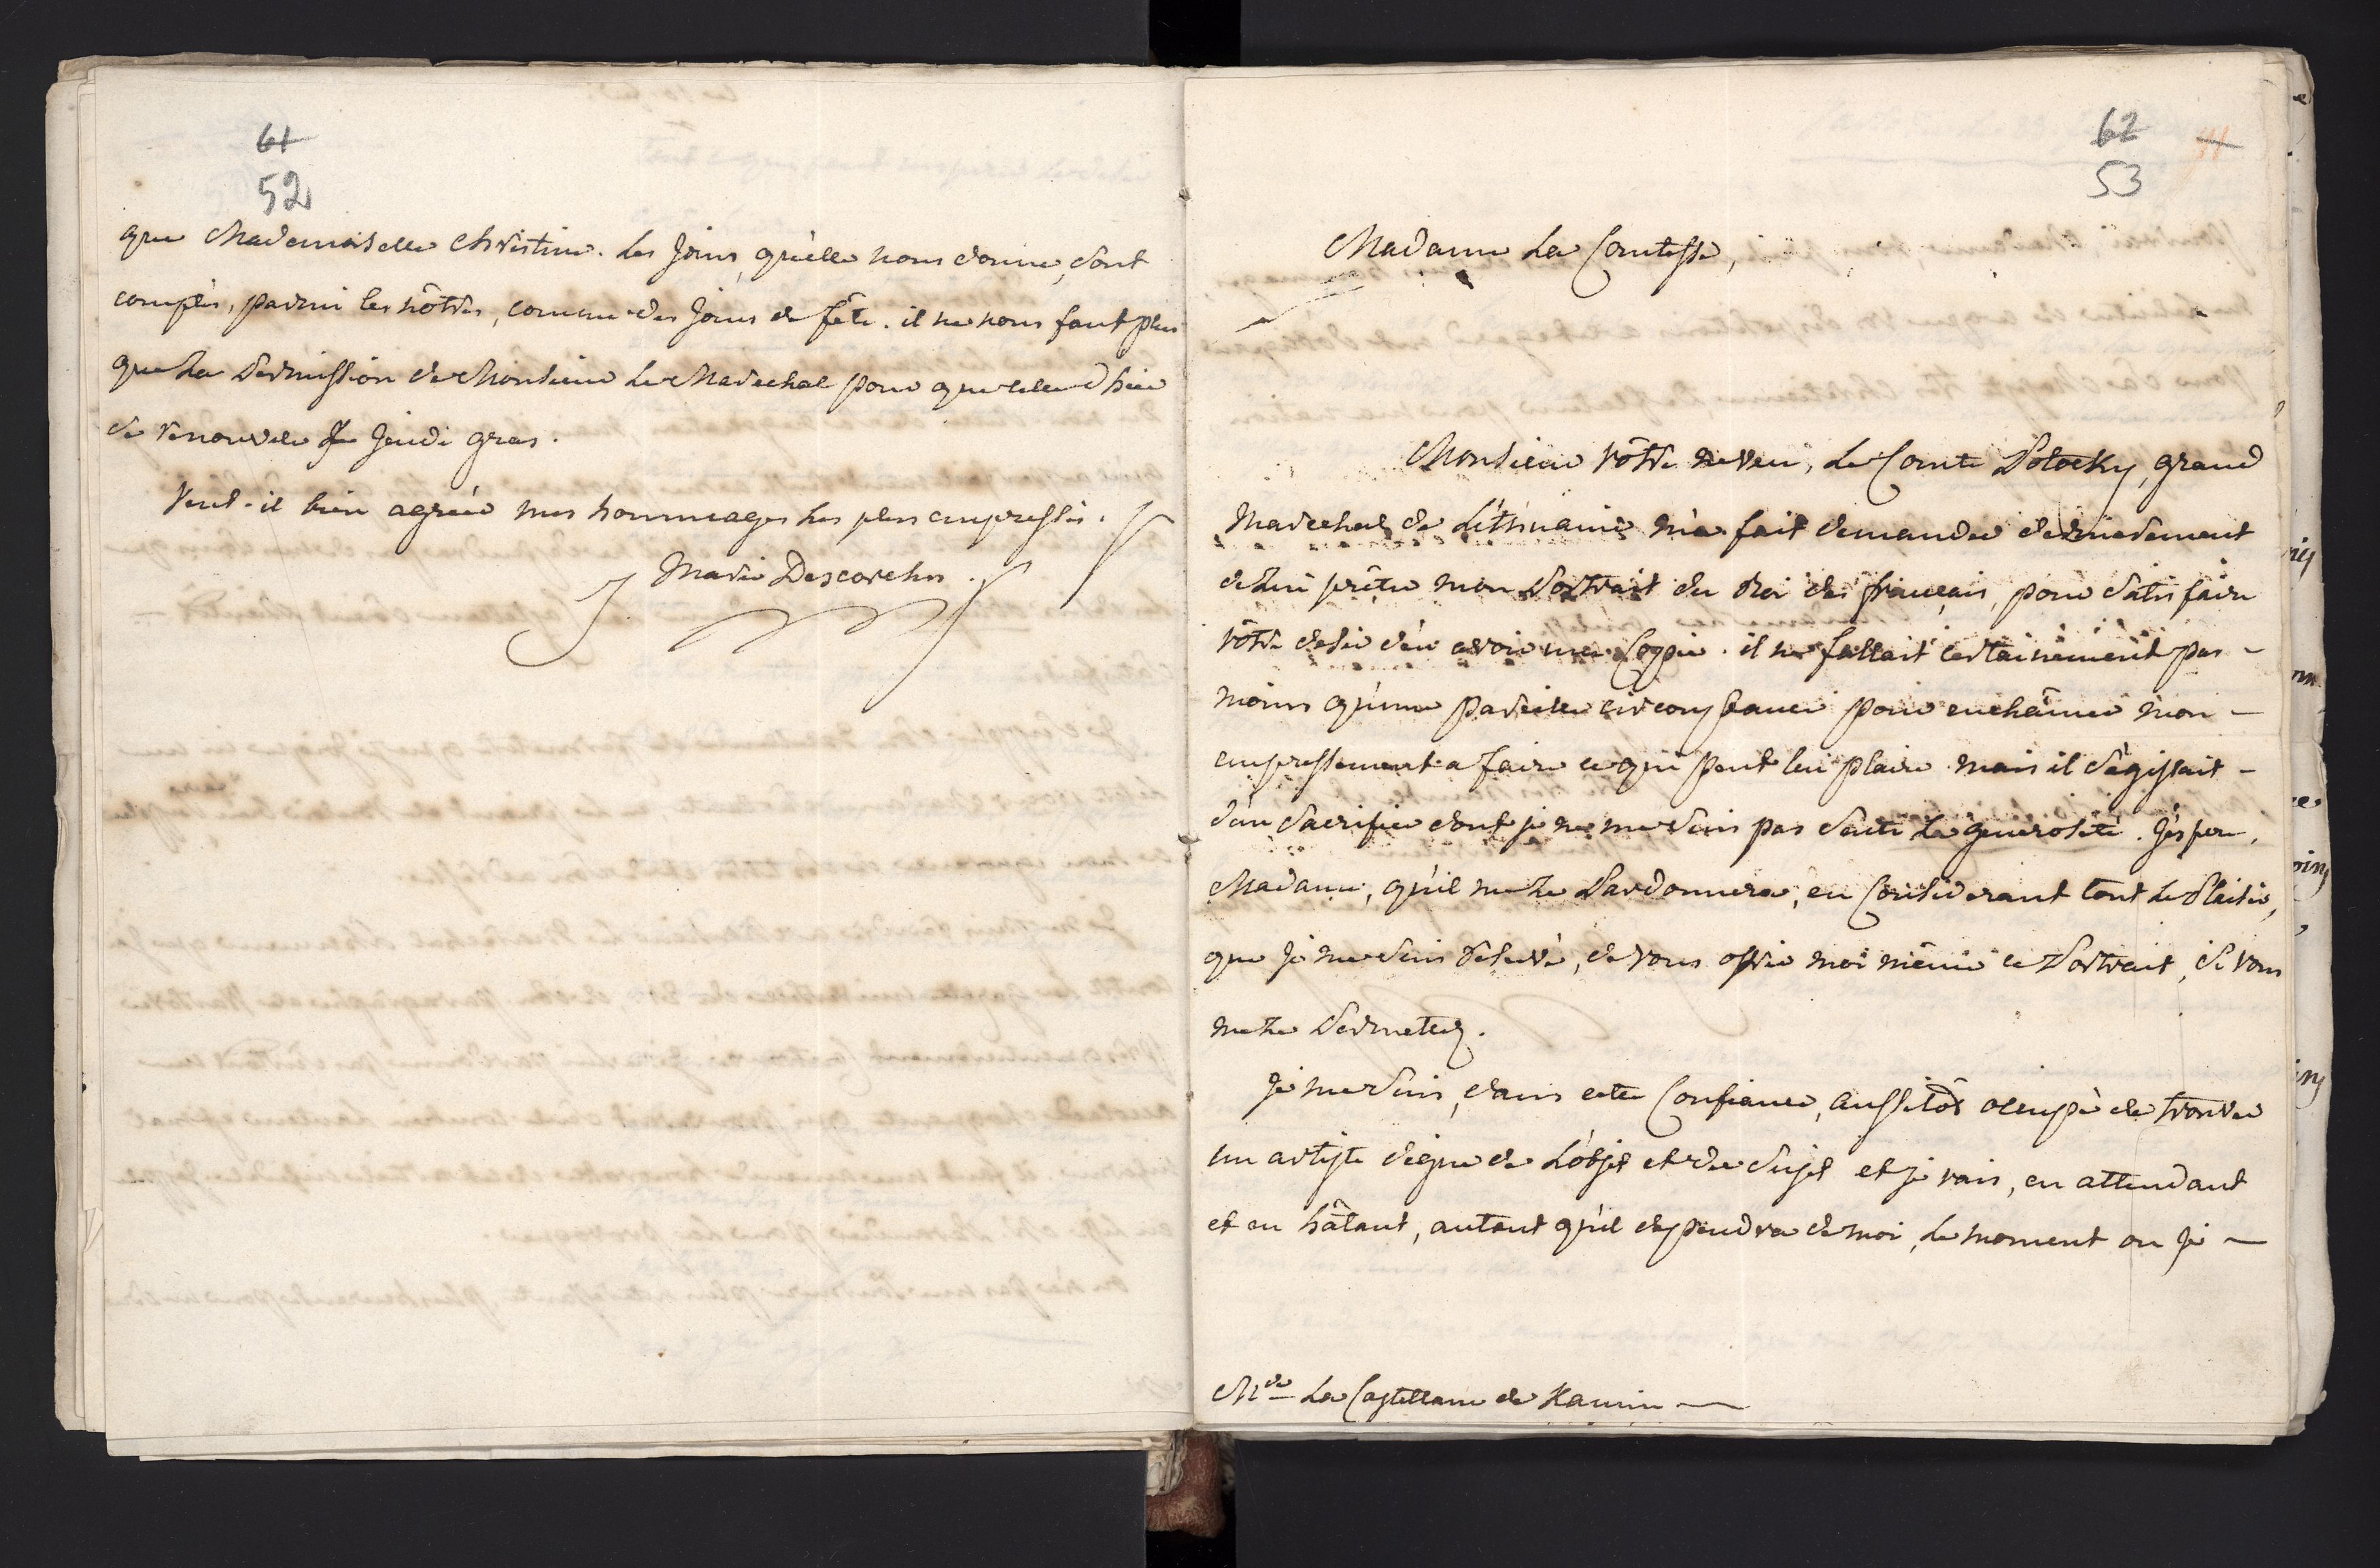 61
52
que Mademoiselle Christine. Les Jours, qu'elle nous donne, sont
comptés, parmi les nôtres, comme des Jours de fête. il ne nous faut plus
que La Permission de Monsieur Le Marechal pour que celui d'hier
se renouvele Jeudi gras.
Veut-il bien agréer mes hommages les plus empressés.
Marie Descorches.
62
53
Madame La Comtesse,
Monsieur vôtre neveu, Le Comte Potocky, grand
Marechal de Lithuanie m'a fait demander dernierement
de Lui prêter mon Portrait du Roi des français, pour satisfaire
vôtre desir d'en avoir une Coppie. il ne fallait certainement pas
moins qu'une pareille circonstance pour enchâiner mon
empressement a faire ce qui peut lui plaire mais il s'agissait
d'un Sacrifice dont je ne me suis pas senti La generosité. J'éspere,
Madame, qu'il me Le Pardonnera, en Considerant tout Le Plaisir,
que Je me suis réservé, de vous offrir moi même ce Portrait, si vous
me Le Permetez.
Je me suis, dans cette Confiance, aussitôt ocupé de trouver
un artiste digne de L'objet et du Sujet et je vais, en attendant
et en hâtant, autant qu'il dépendra de moi, Le moment ou Je
Mde La Castellane de Kamin